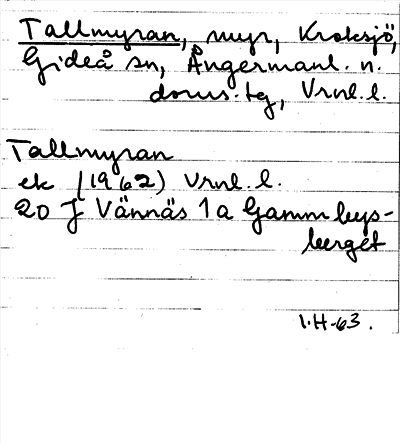 Tallmyran, myr, Kroksjö,
Gideå sn, Ångermanl. n.
doms.tg, Vrnl.l.
Tallmyran
ek (1962) Vrnl.l.
20 J Vännäs 1a Gammbys-
berget
I.H-63.